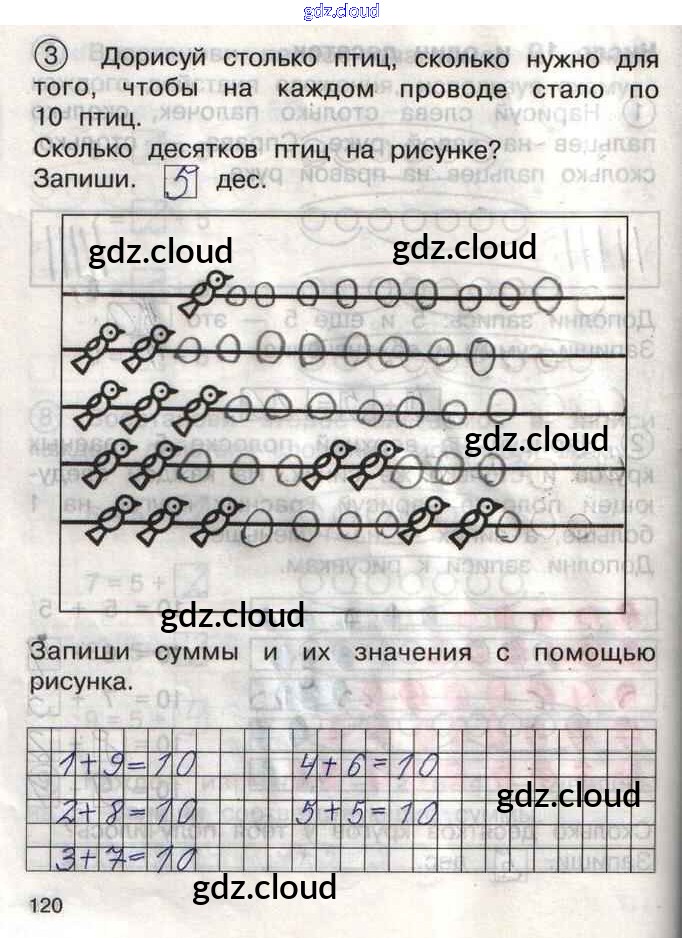 gdz.cloud
3 Дорисуй столько птиц, сколько нужно для
того, чтобы на каждом проводе стало по
10 птиц.
Сколько десятков птиц на рисунке?
Запиши. 5 дес.
gdz.cloud gdz.cloud
gdz.cloud
gdz.cloud
Запиши суммы и их значения с помощью
рисунка.
1+9=10 4+6=10
2+8=10 5+5=10
gdz.cloud
3+7=10
gdz.cloud
120